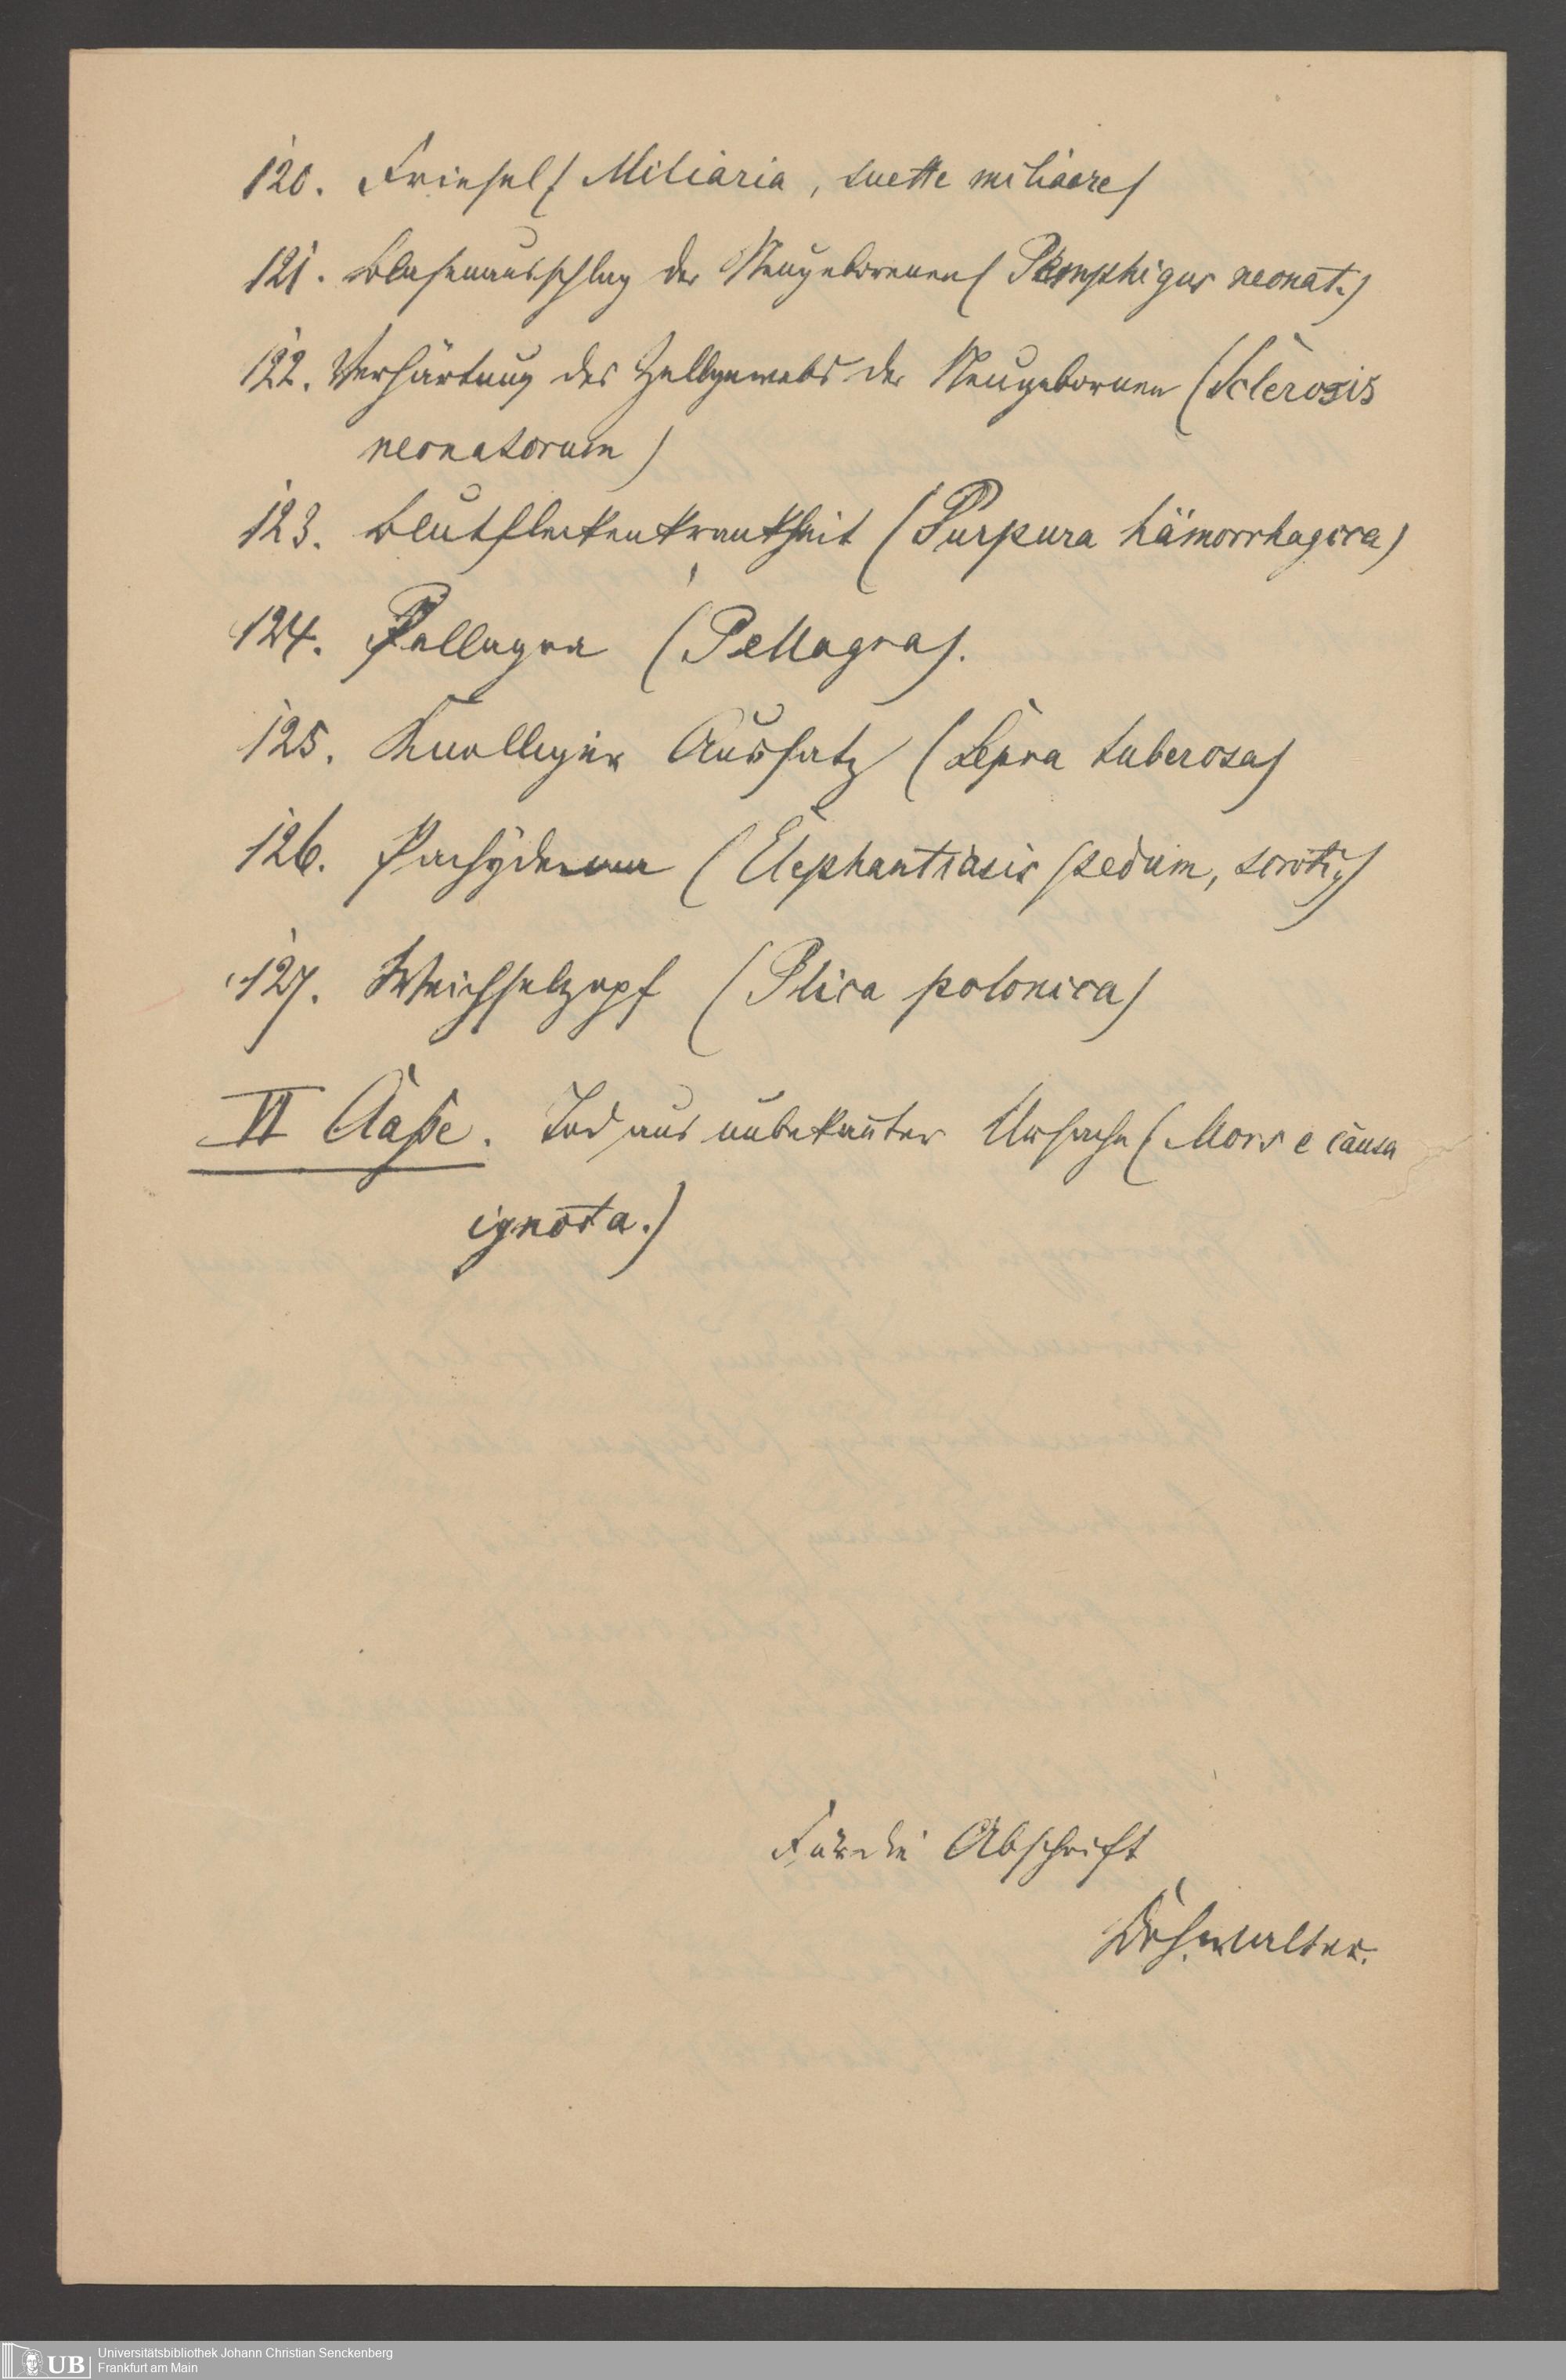 120. Friesel (Miliaria, suette miliaire)
121. Blasenausschlag der Neugeborenen (Pemphigus neonat.)
122. Verhärtung des Zellgewebs der Neugebornen (Sclerosis
neonatorum)
123. Blutfleckenkrankheit (Purpura hämorrhagica)
124. Pellagra (Pellagra).
125. Knolliger Aussatz (Lepra tuberosa)
126. Pachyderma (Elephantiasis pedum, scroti)
127. Weichselzopf (Plica polonica)
VI Claße. Tod aus unbekan̄ter Ursache (Mors e causa
ignota.)
Für die Abschrift
UB
Universitätsbibliothek Johann Christian Senckenberg
Frankfurt am Main